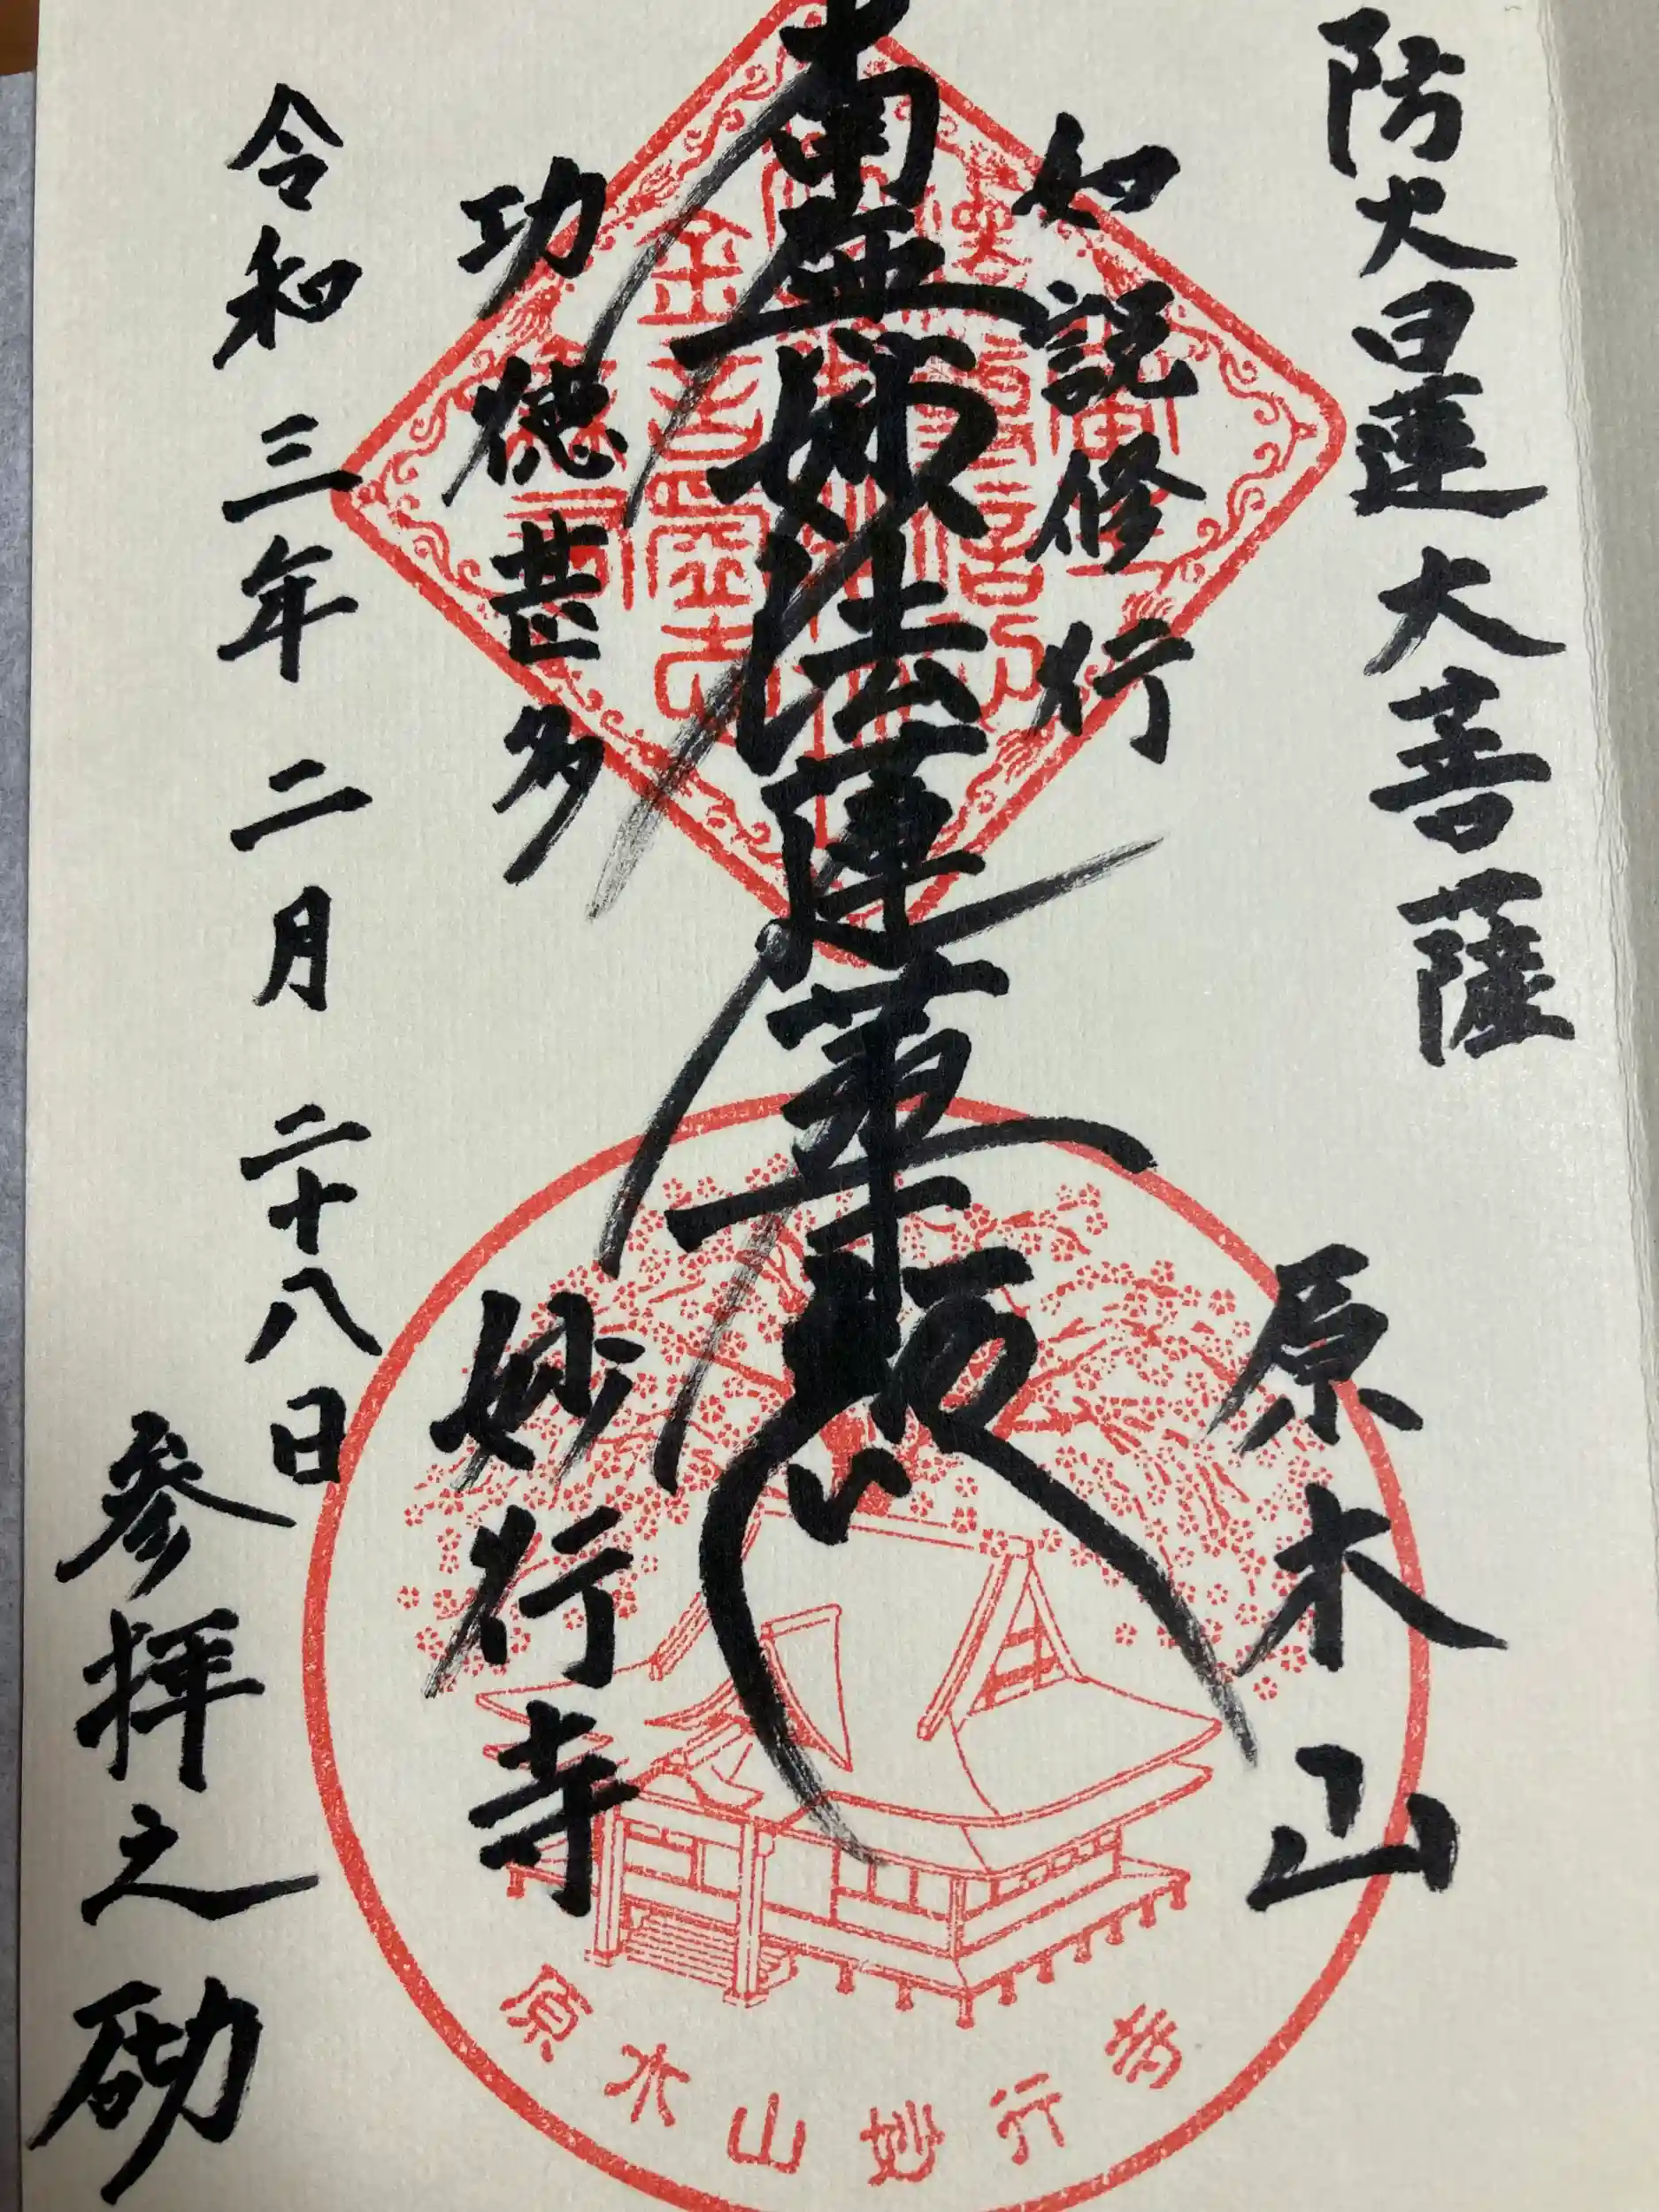 防火日蓮大菩薩
如説修行
南無妙法蓮華経
功徳甚多
原木山
妙行寺
令和三年二月二十八日
参拝之砌
原木山妙行寺